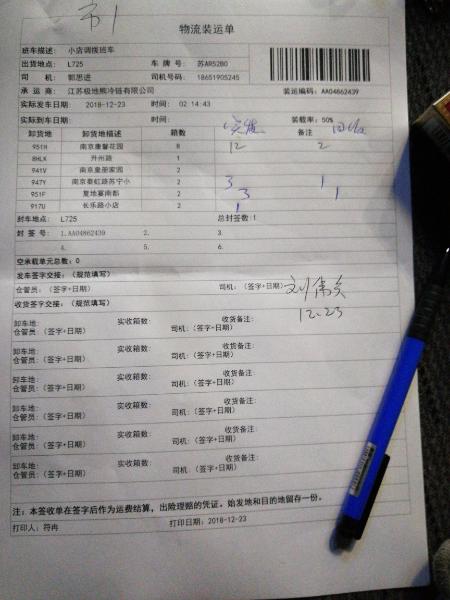 市1
物流装运单
班车描述: 小店调拨班车
出货地点: L725 车 牌 号: 苏AR5280
司 机: 郭思进 司机号码: 18651905245
承 运 商: 江苏极地熊冷链有限公司 装运编码: AA04862439
实际发车日期: 2018-12-23 时间: 02:14:43
实际到车日期: 时间: 装载率: 50%
卸货地 卸货地描述 箱数 实发 备注 回收
951H 南京康馨花园 8 12 2
8HLX 升州路 1
941V 南京皇册家园 2
947Y 南京泰虹路苏宁小 2 3 1
951F 复地宴南都 2 3 1
917U 长乐路小店 2 1
封车地点: L725 总封签数:1
封 签 号: 1.AA04862439 2. 3.
4. 5. 6.
空承载单元总数: 0
发车签字交接: (规范填写)
仓管员: (签字+日期) 司机: (签字+日期)
12.23
收货签字交接: (规范填写)
卸车地: 实收箱数: 收货备注:
仓管员: (签字+日期) 司机: (签字+日期)
卸车地: 实收箱数: 收货备注:
仓管员: (签字+日期) 司机: (签字+日期)
卸车地: 实收箱数: 收货备注:
仓管员: (签字+日期) 司机: (签字+日期)
卸车地: 实收箱数: 收货备注:
仓管员: (签字+日期) 司机: (签字+日期)
卸车地: 实收箱数: 收货备注:
仓管员: (签字+日期) 司机: (签字+日期)
卸车地: 实收箱数: 收货备注:
仓管员: (签字+日期) 司机: (签字+日期)
注: 本签收单在签字后作为运费结算, 出险理赔的凭证。始发地和目的地留存一份。
打印人: 符冉 打印日期: 2018-12-23